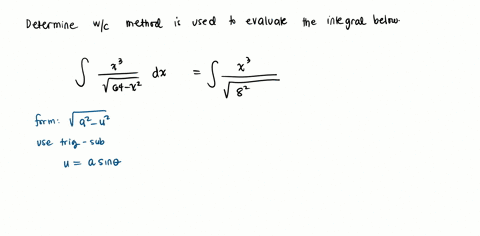 Determine w/c method is used to evaluate the integral below.
∫ x³/√(64-x²) dx = ∫ x³/√(8²
form: √(a²-u²)
use trig-sub
u = a sinθ